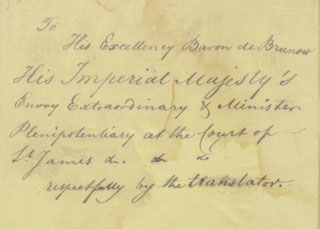 To
His Excellency Baron de Brunow
His Imperial Majesty's
Envoy Extraordinary & Minister
Plenipotentiary at the Court of
St. James &. & &
respectfully by the translator.